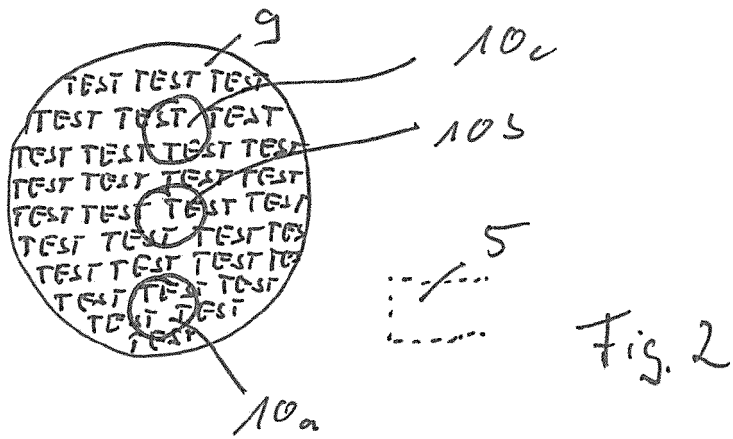 9
10c
TEST TEST TEST
TEST TEST TEST
10b
TEST TEST TEST TEST
TEST TEST TEST TEST
TEST TEST TEST TEST
5
TEST TEST TEST TES
TEST TEST TEST TE
TEST TEST TEST
TEST TEST
TEST
Fig. 2
10a